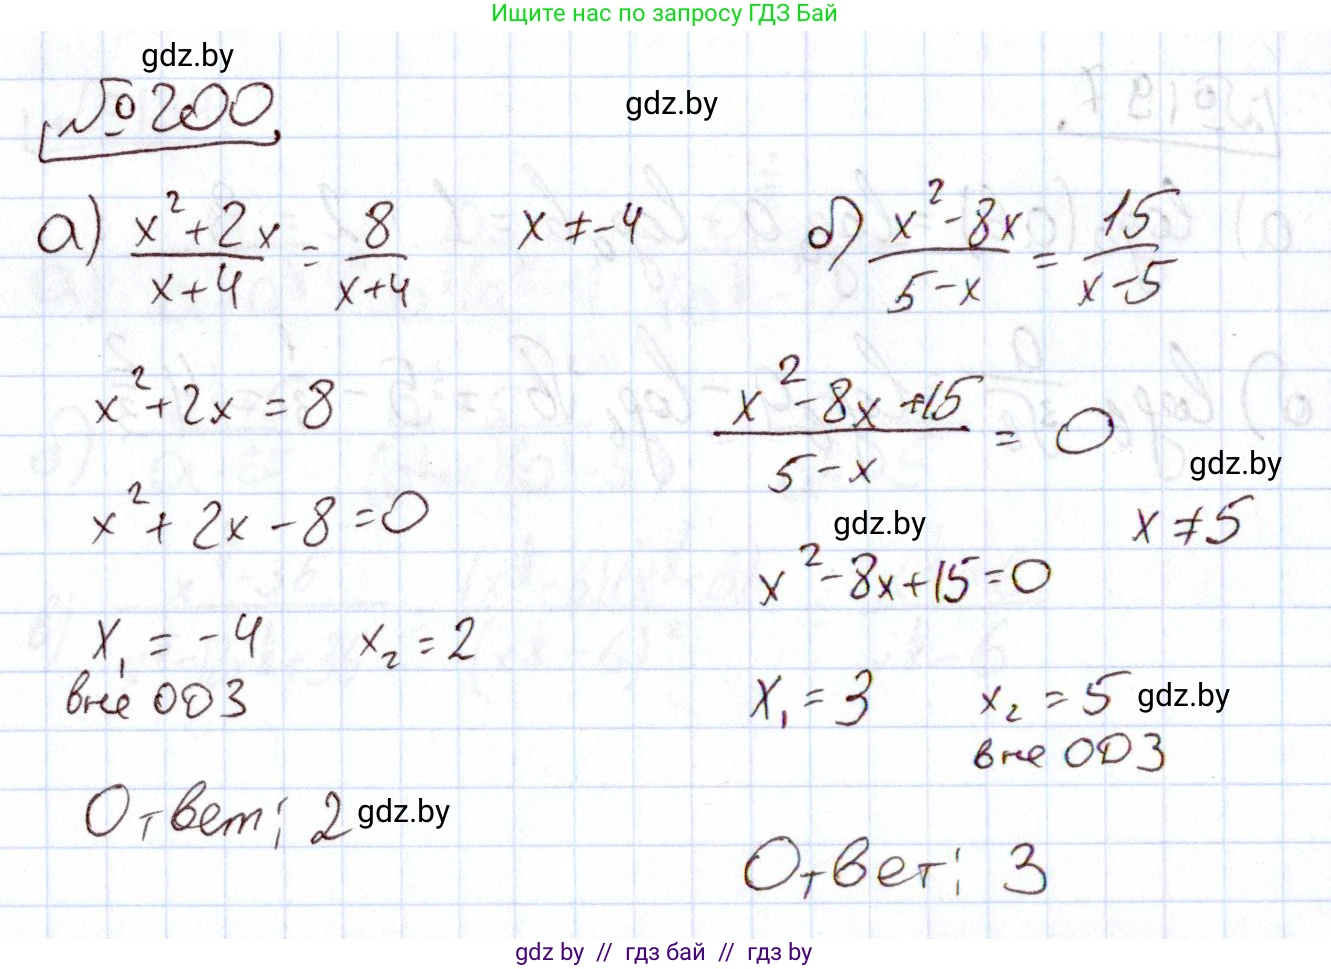 Ищите нас по запросу ГДЗ Бай
gdz.by
№200
gdz.by
а) (x²+2x)/(x+4) = 8/(x+4) x≠-4
x²+2x=8
x²+2x-8=0
x₁=-4 x₂=2
вне ОДЗ
Ответ: 2
gdz.by
б) (x²-8x)/(5-x) = 15/(x-5)
(x²-8x+15)/(5-x) = 0
gdz.by
gdz.by
x≠5
x²-8x+15=0
x₁=3 x₂=5
gdz.by
вне ОДЗ
Ответ: 3
gdz.by // гдз бай // гдз by